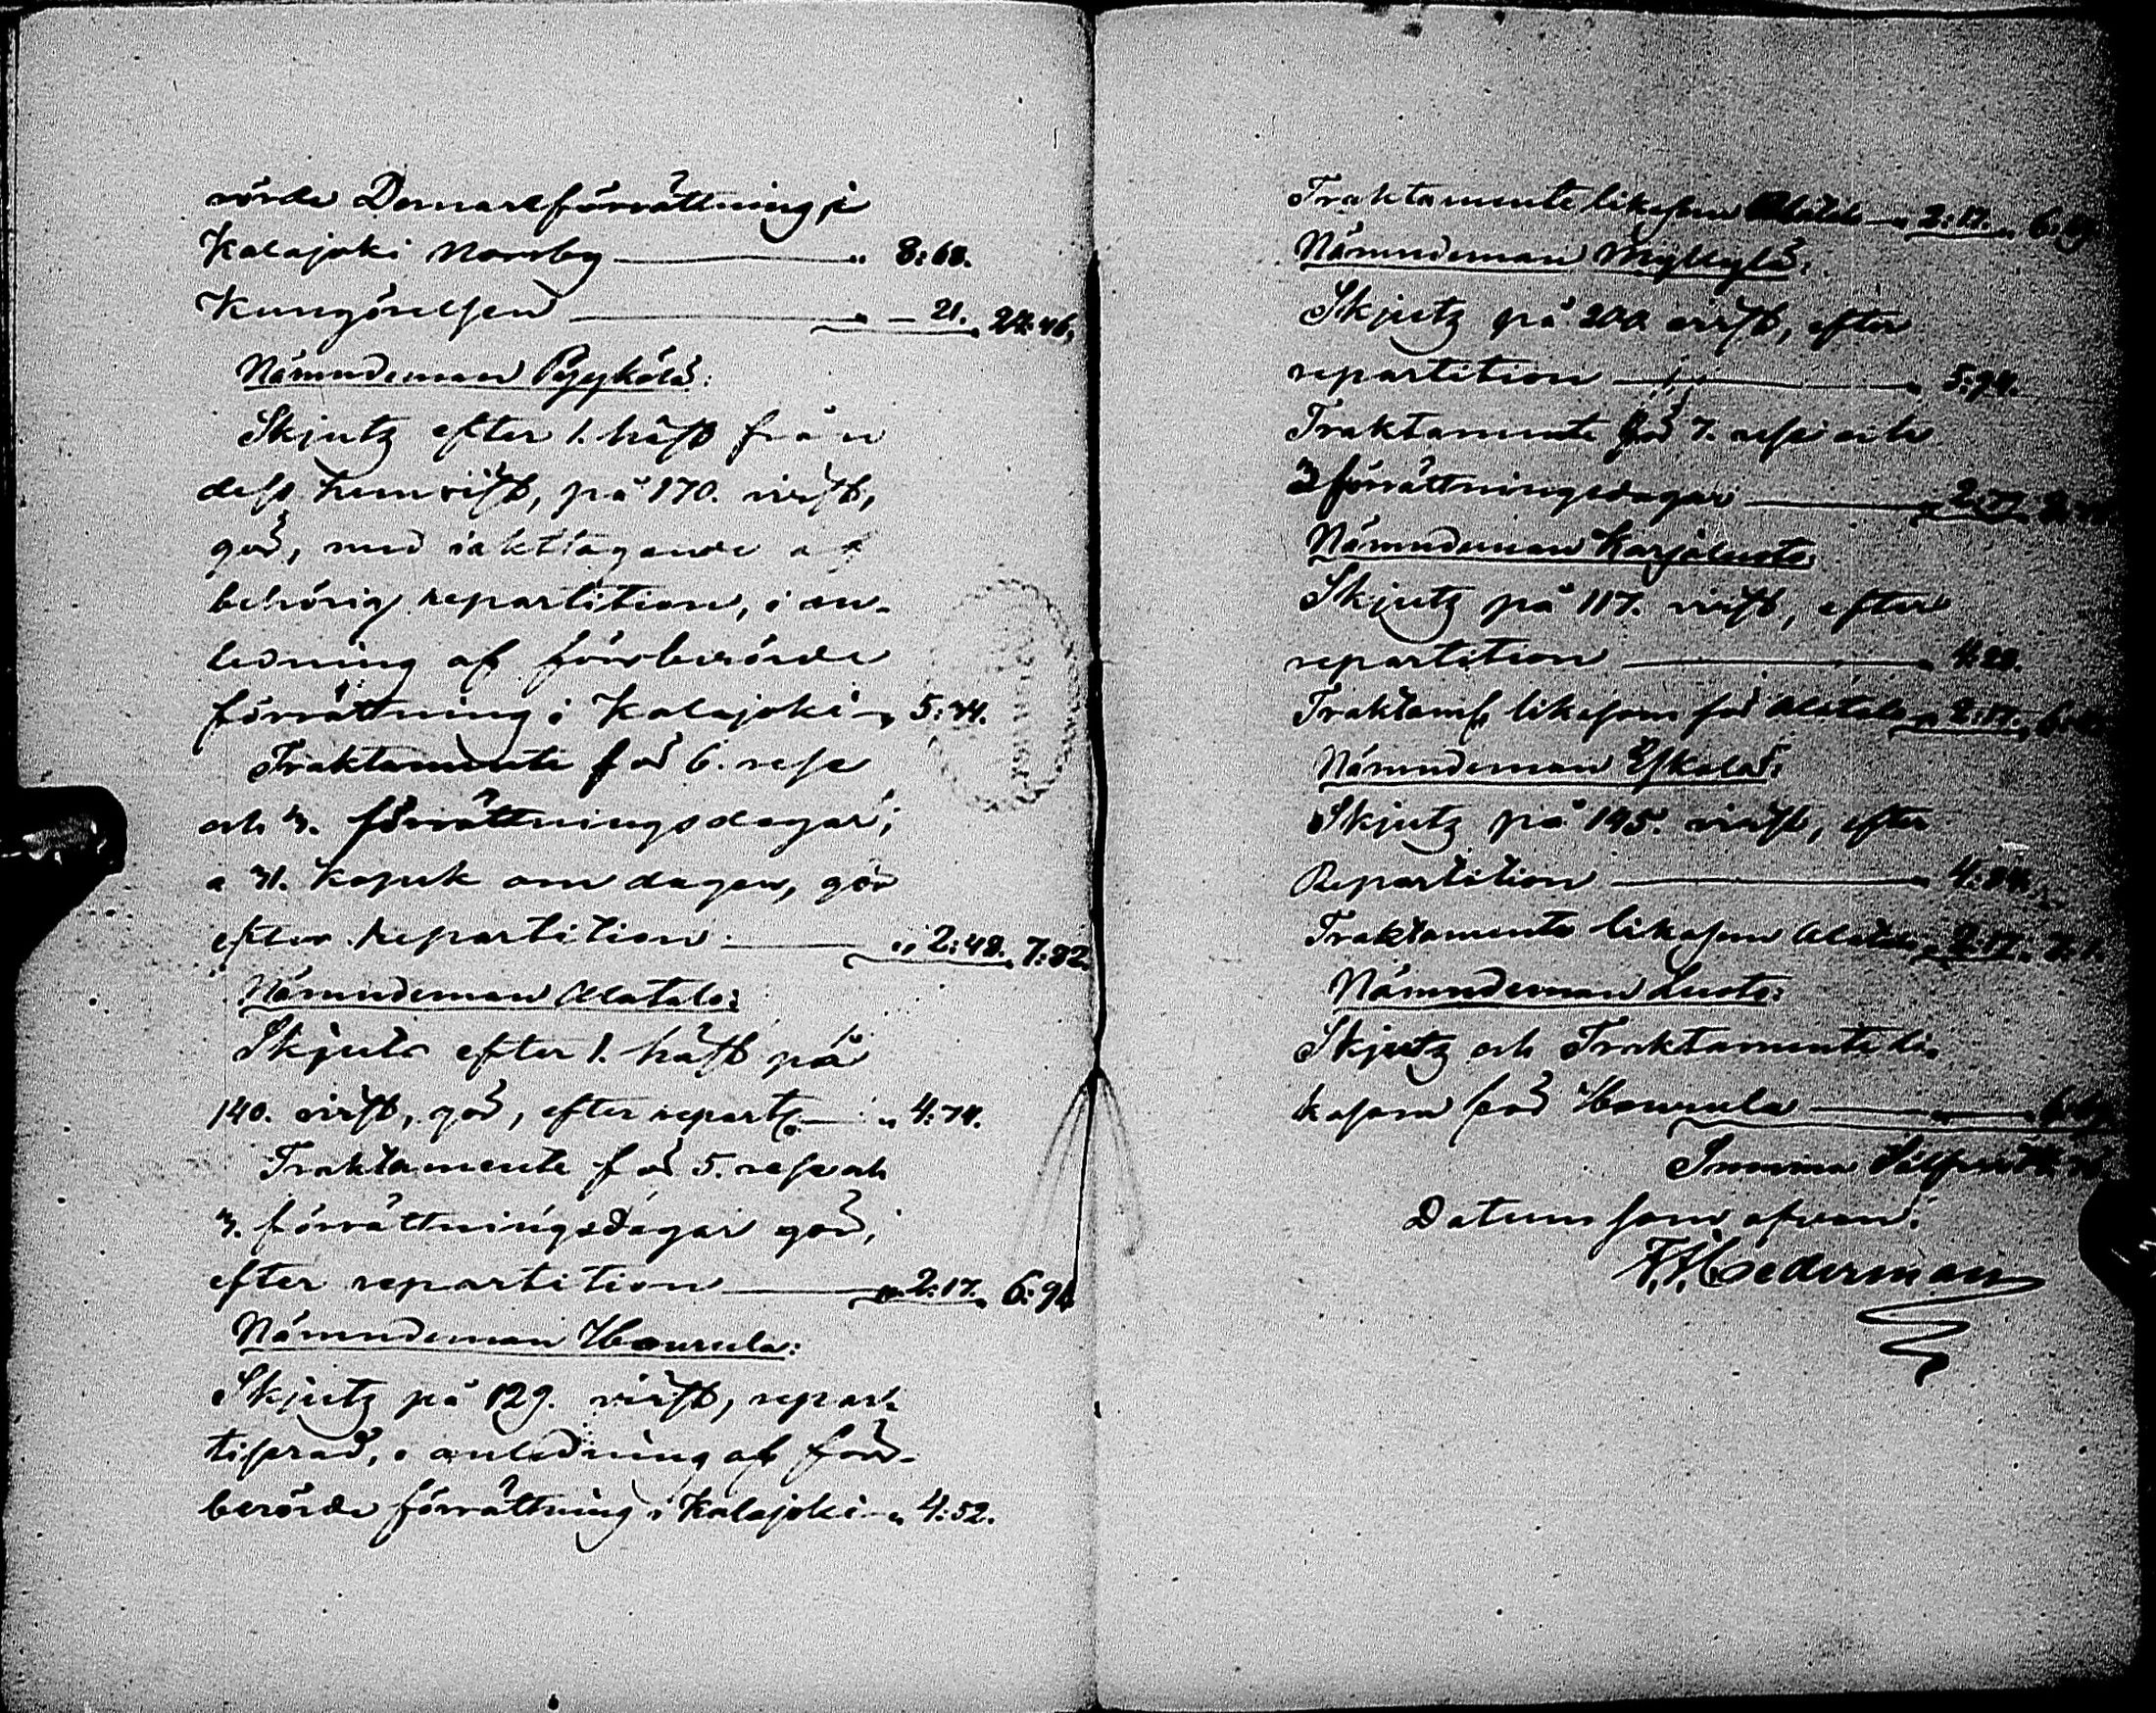 rörde Domareförrättning i
Kalajoki Norrby — " 8: 68.
Kungörelsen — " — 21. 24: 46.
Nämndeman Pyykölä:
Skjutz efter 1. häst från
dess hemvist, på 170. virst,
gör, med iakttagande af
behörig repartition, i an-
ledning af förberörde
förrättning i Kalajoki " 5: 44.
Traktamente för 6. rese
och 3. förrättningsdagar,
a 31. kopek om dagen, gör
efter repartition — " 2: 48. 7: 82.
Nämndeman Alatalo:
Skjuts efter 1. häst på
140. virst, gör, efter repart. — " 4: 74.
Traktamente för 5. rese och
3. förrättningsdagar gör,
efter repartition — " 2: 17. 6: 91.
Nämndeman Hourula:
Skjutz på 129. virst, repar-
tiserad, i anledning af för-
berörde förrättning i Kalajoki " 4: 52.
Traktamente likasom Alatalo " 2: 17. 6: 69.
Nämndeman Myllylä:
Skjutz på 200 virst, efter
repartition — " 5: 94.
Traktamente för 7. rese och
3 förrättningsdagar — " 2: 79.
Nämndeman Karjaluoto
Skjutz på 117. virst, efter
repartition — " 4: 28.
Traktamt likasom för Alatalo " 2: 17.
Nämndeman Eskola:
Skjutz på 145. virst, efter
Repartition — " 4: 84.
Traktamente likasom Alatalo " 2: 17.
Nämndeman Luoto:
Skjutz och Traktamente li-
kasom för Hourula — 6: 69
Summa Silfver
Datum som ofvan.
Cederman